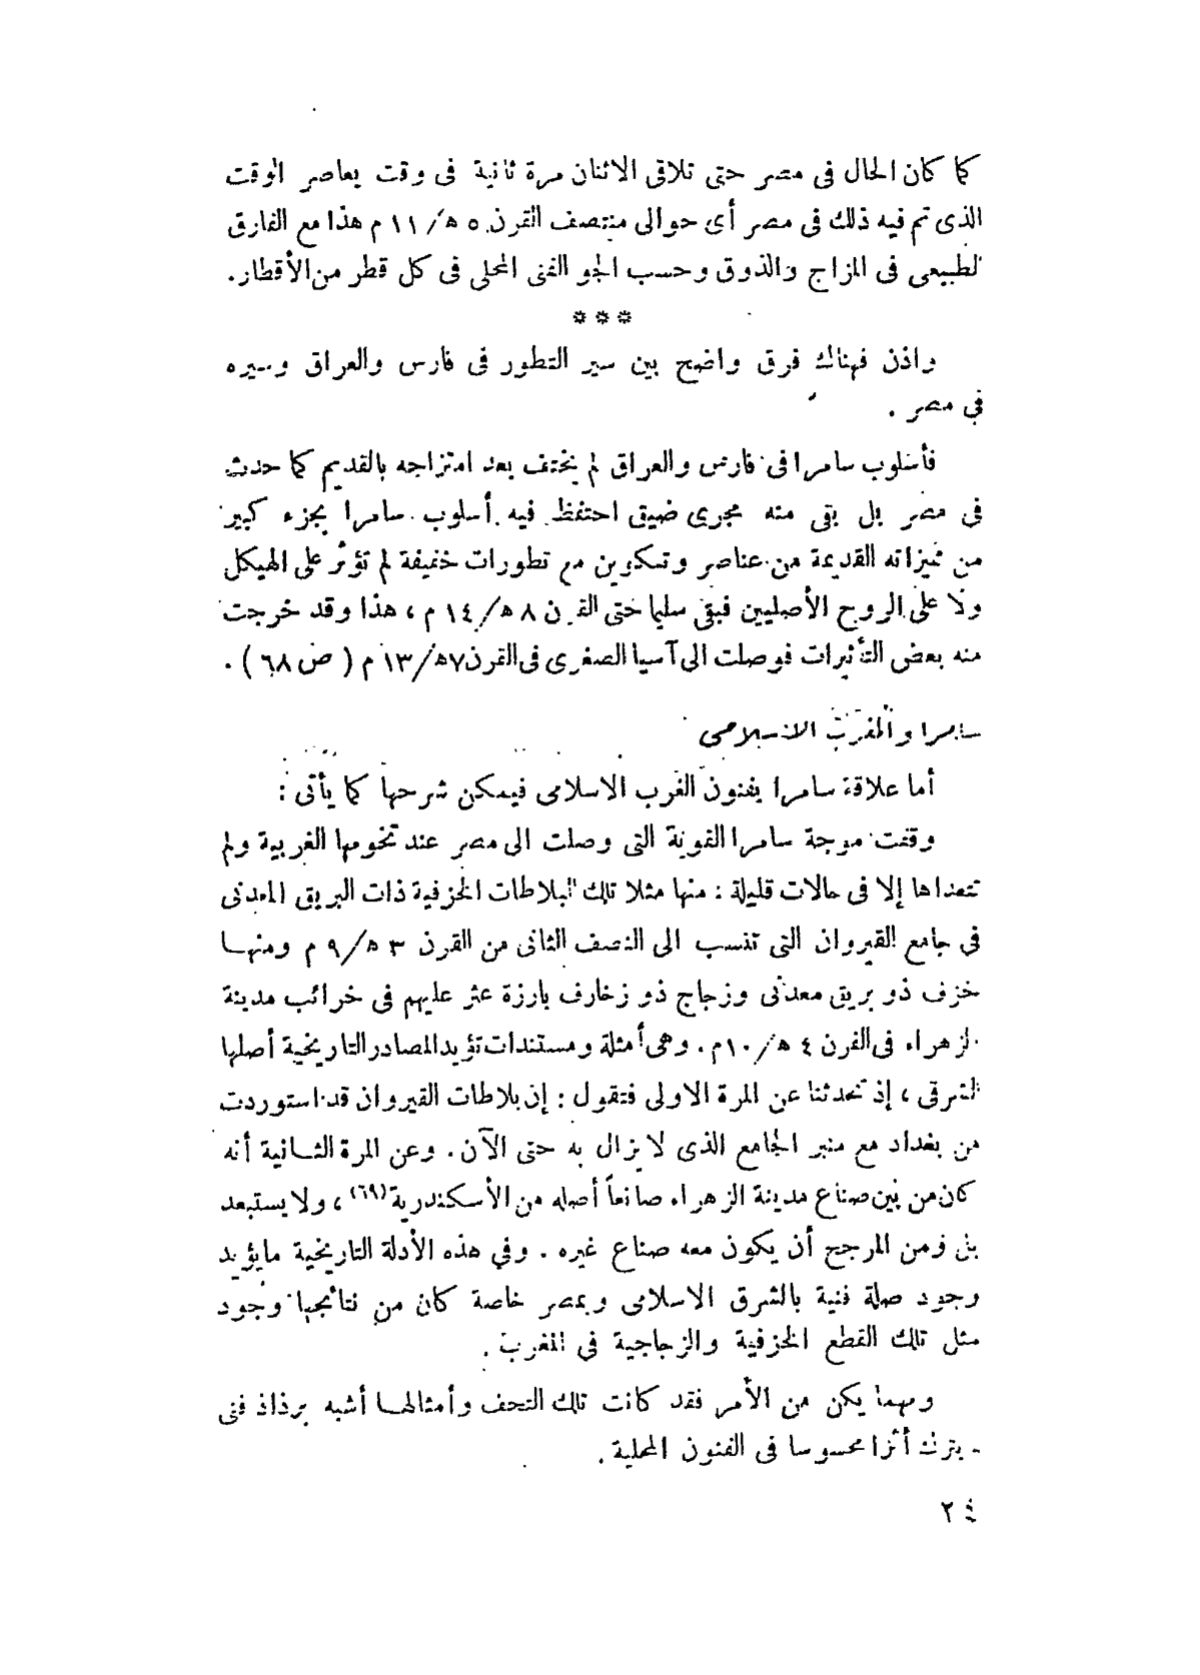 كما كان الحال فى مصر حتى تلاقى الاثنان مرة ثانية فى وقت يعاصر الوقت
الذى تم فيه ذلك فى مصر أى حوالى منتصف القرن ٥ ھ/ ١١ م هذا مع الفارق
الطبيعى فى المزاج والذوق وحسب الجو الفنى المحلى فى كل قطر من الأقطار.
***
واذن فهناك فرق واضح بين سير التطور فى فارس والعراق وسيره
في مصر .
فأسلوب سامرا فى فارس والعراق لم يختف بعد امتزاجه بالقديم كما حدث
فى مصر بل بقى منه مجرى ضيق احتفظ فيه أسلوب سامرا بجزء كبير
من مميزاته القديمة من عناصر وتكوين مع تطورات خفيفة لم تؤثر على الهيكل
ولا على الروح الأصليين فبقى سليما حتى القرن ٨ ھ/ ١٤ م ، هذا وقد خرجت
منه بعض التأثيرات فوصلت الى آسيا الصغرى فى القرن ٧ھ/ ١٣ م ( ص ٦٨ ) .
سامرا والمغرب الاسلامى
أما علاقة سامرا بفنون الغرب الاسلامى فيمكن شرحها كما يأتى :
وقفت موجة سامرا القوية التى وصلت الى مصر عند تخومها الغربية ولم
تتعداها إلا فى حالات قليلة : منها مثلا تلك البلاطات الخزفية ذات البريق المعدنى
فى جامع القيروان التى تنسب الى النصف الثانى من القرن ٣ ھ/ ٩ م ومنها
خزف ذو بريق معدنى وزجاج ذو زخارف بارزة عثر عليهم فى خرائب مدينة
الزهراء فى القرن ٤ ھ/ ١٠م . وهى أمثلة ومستندات تؤيد المصادر التاريخية أصلها
الشرقى ، إذ تحدثنا عن المرة الاولى فتقول : إن بلاطات القيروان قد استوردت
من بغداد مع منبر الجامع الذى لا يزال به حتى الآن . وعن المرة الثانية أنه
كان من بين صناع مدينة الزهراء صانعاً أصله من الأسكندرية (٦٩) ، ولا يستبعد
بل ومن المرجح أن يكون معه صناع غيره . وفي هذه الأدلة التاريخية مايؤيد
وجود صلة فنية بالشرق الاسلامى وبمصر خاصة كان من نتائجها وجود
مثل تلك القطع الخزفية والزجاجية في المغرب .
ومهما يكن من الأمر فقد كانت تلك التحف وأمثالها أشبه برذاذ فنى
يترك أثرا محسوسا فى الفنون المحلية .
٢٤